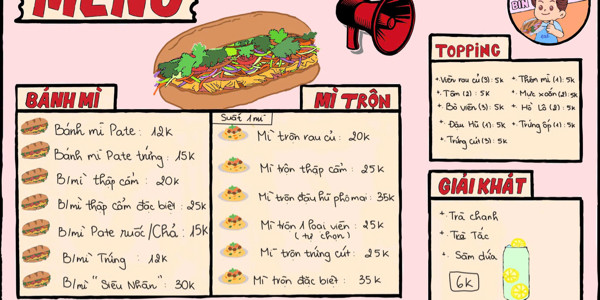 MENU
BIN
BÁNH MÌ
Bánh mì Pate : 12k
Bánh mì Pate trứng : 15k
B/mì thập cẩm : 20k
B/mì thập cẩm đặc biệt : 25k
B/mì Pate ruốc/Chả : 15k
B/mì Trứng : 12k
B/mì "Siêu Nhân" : 30k
MÌ TRỘN
Suất 1 mì
Mì trộn rau củ : 20k
Mì trộn thập cẩm : 25k
Mì trộn đậu hũ phô mai : 35k
Mì trộn 1 loại viên : 25k
(tự chọn)
Mì trộn trứng cút : 25k
Mì trộn đặc biệt : 35k
TOPPING
+ Viên rau củ (3) : 5k
+ Tôm (2) : 5k
+ Bò viên (3) : 5k
+ Đậu Hũ (1) : 5k
+ Trứng cút (3) : 5k
+ Thêm mì (1) : 5k
+ Mực xoắn (2) : 5k
+ Hồ Lô (2) : 5k
+ Trứng ốp (1) : 5k
GIẢI KHÁT
+ Trà chanh
+ Trà Tắc
+ Sâm dứa
6k